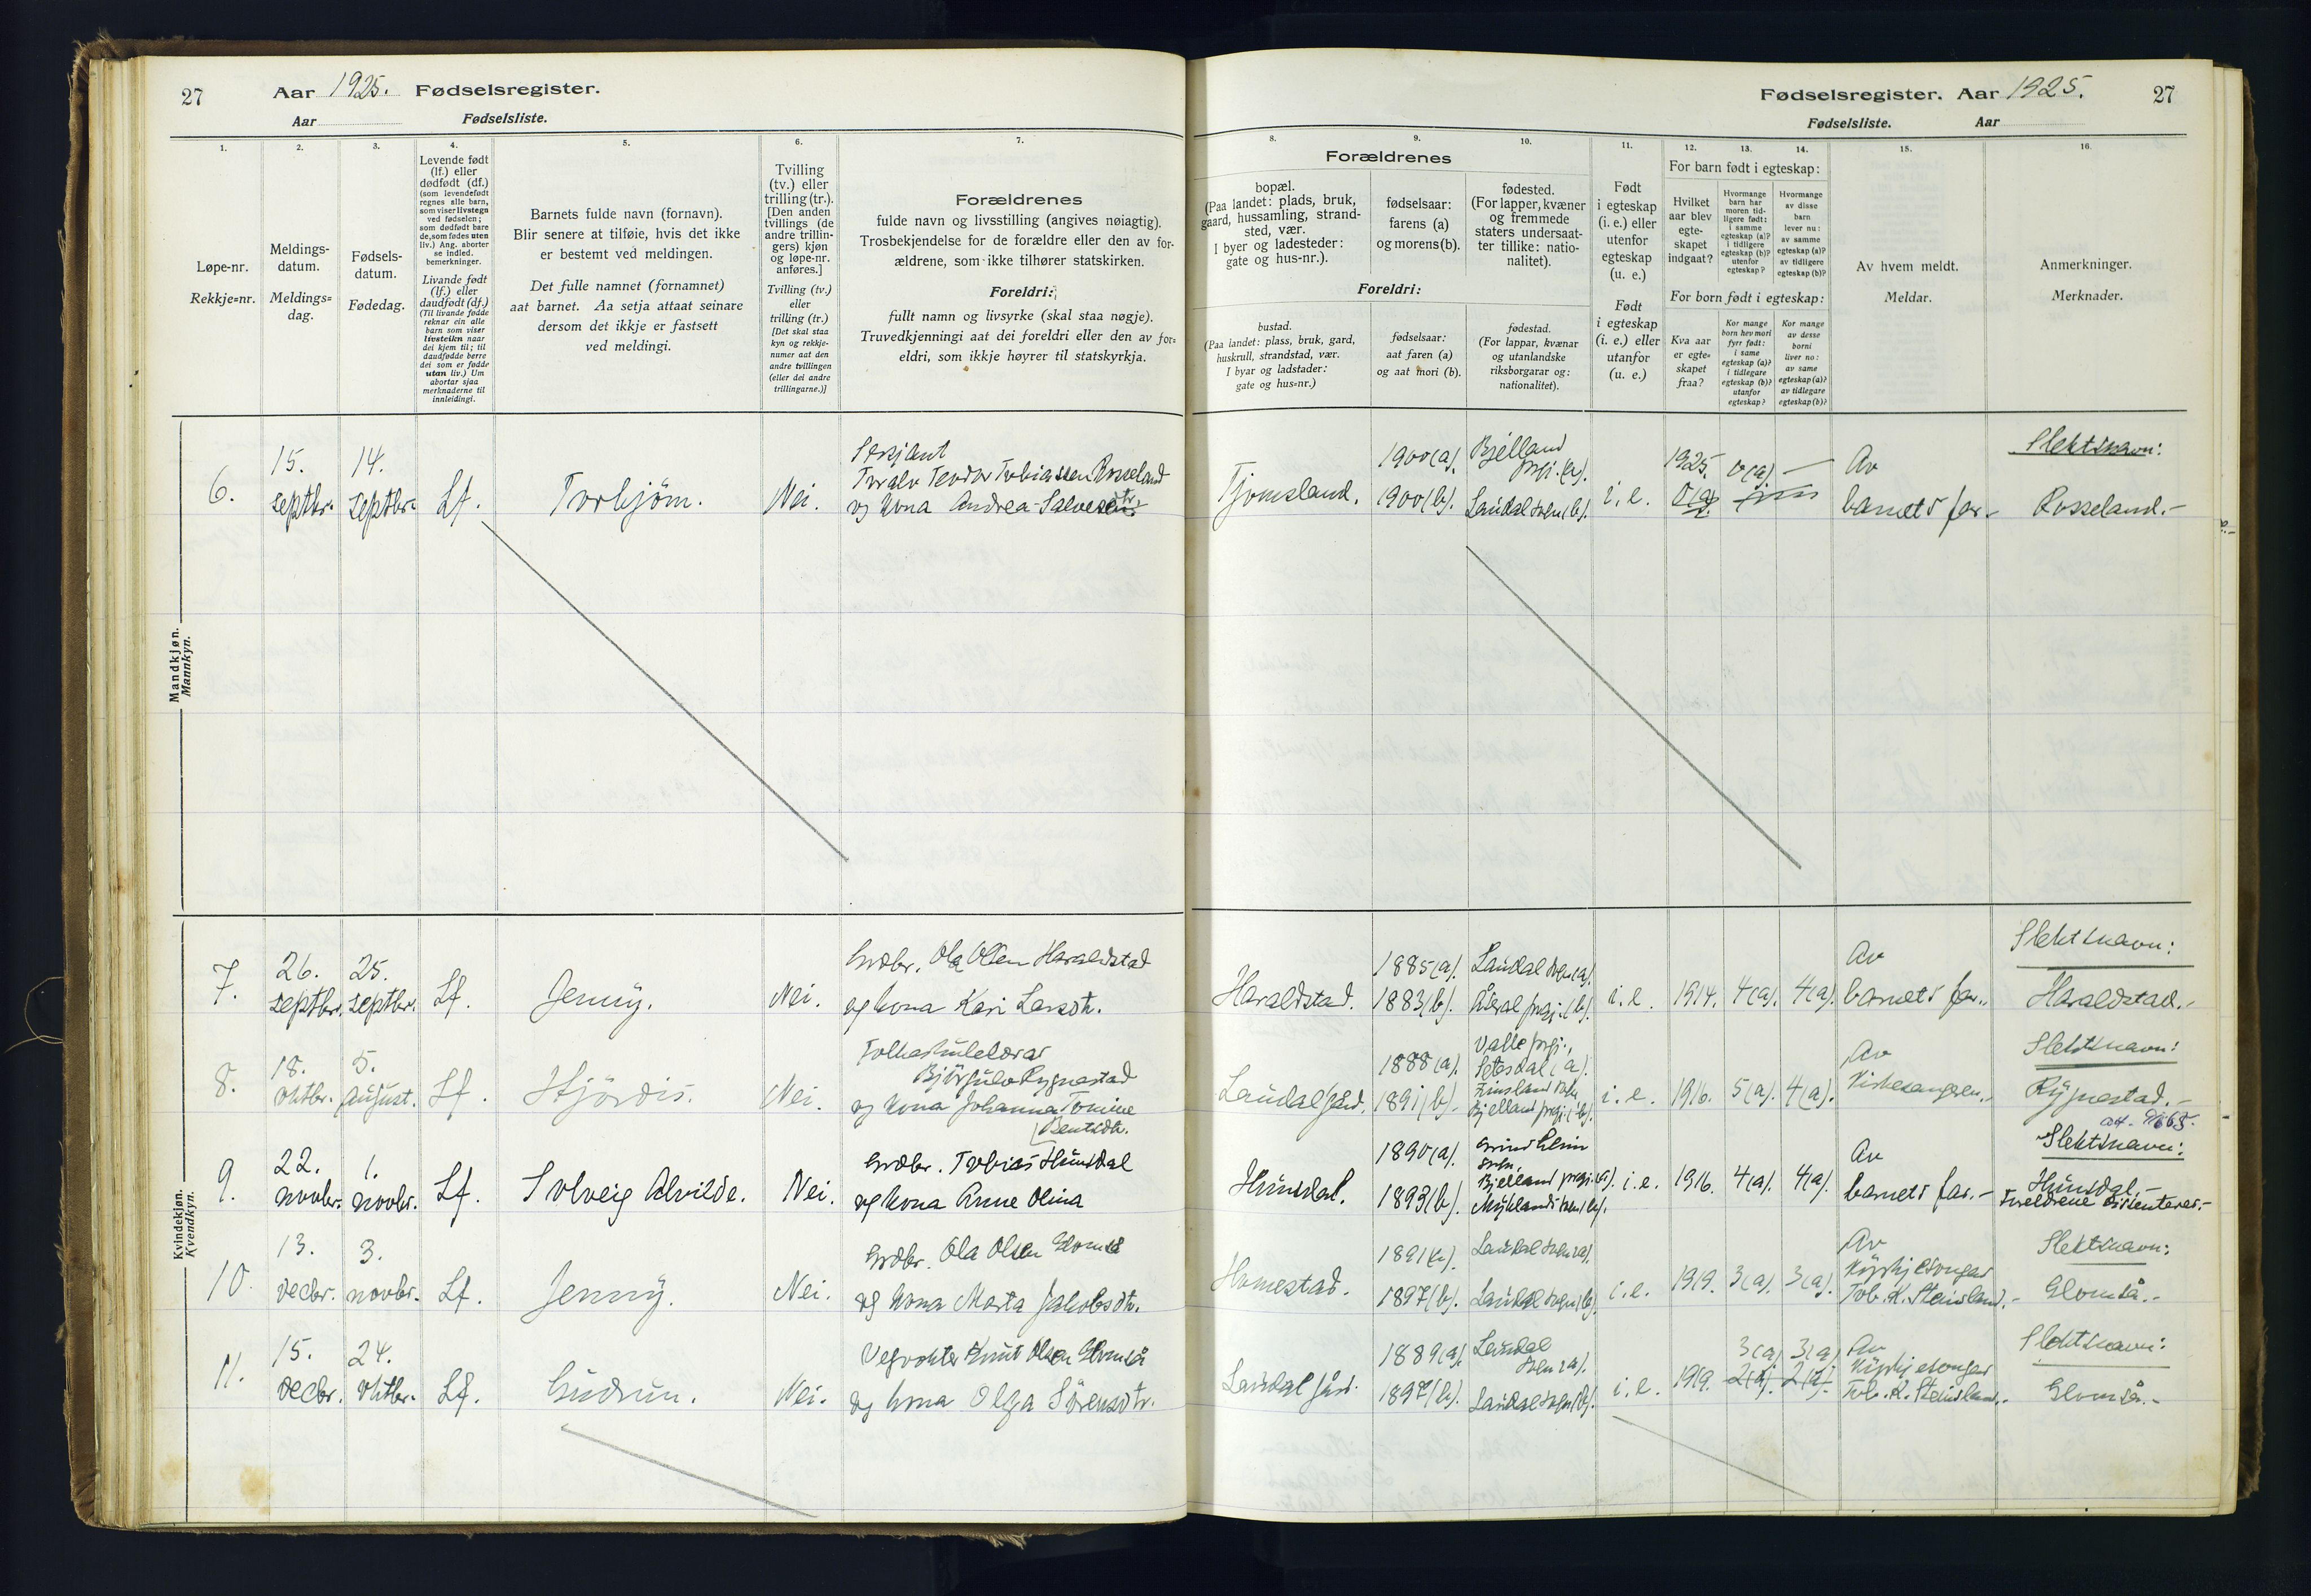 27
Aar 1925. Fødselsregister.
Aar
Fødselsliste.
1.
2.
3.
4.
5.
6.
7.
Løpe-nr.
Rekkje=nr.
Meldings-
datum.
Meldings=
dag.
Fødsels-
datum.
Fødedag.
Levende født
(lf.) eller
dødfødt (df.)
(som levendefødt
regnes alle barn,
som viser livstegn
ved fødselen;
som dødfødt bare
de, som fødes uten
liv.) Ang. aborter
se indled.
bemerkninger.
Livande født
(lf.) eller
daudfødt (df.)
(Til livande fødde
reknar ein alle
barn som viser
livsteikn naar
dei kjem til; til
daudfødde berre
dei som er fødde
utan liv.) Um
abortar sjaa
merknaderne til
innleidingi.
Barnets fulde navn (fornavn).
Blir senere at tilføie, hvis det ikke
er bestemt ved meldingen.
Det fulle namnet (fornamnet)
aat barnet. Aa setja attaat seinare
dersom det ikkje er fastsett
ved meldingi.
Tvilling
(tv.) eller
trilling (tr.).
[Den anden
tvillings (de
andre trillin-
gers) kjøn
og løpe-nr.
anføres.]
Tvilling (tv.)
eller
trilling (tr.)
[Det skal staa
kyn og rekkje-
numer aat den
andre tvillingen
(eller dei andre
trillingarne.)]
Forældrenes
fulde navn og livsstilling (angives nøiagtig).
Trosbekjendelse for de forældre eller den av for-
ældrene, som ikke tilhører statskirken.
Foreldri:
fullt namn og livsyrke (skal staa nøgje).
Truvedkjenningi aat dei foreldri eller den av for=
eldri, som ikkje høyrer til statskyrkja.
Mandkjøn.
Mannkyn.
6.
15.
septbr.
14.
septbr.
Lf.
Torbjörn.
Nei.
Sersjant
Toralv Teodor Tobiassen Rosseland
og kona Andrea Salvesdtr.
Kvindekjøn.
Kvendkyn.
7.
26.
septbr.
25.
septbr.
Lf.
Jenny.
Nei.
Grdbr. Ola Olsen Haraldstad
og kona Kari Larsdtr.
8.
18.
oktbr.
5.
august.
Lf.
Hjördis.
Nei.
Folkeskulelærar
Björgulv Rygnestad
og kona Johanna Tomine
Bentsdtr.
9.
22.
novbr.
1.
novbr.
Lf.
Solveig Alvilde.
Nei.
Grdbr. Tobias Hunsdal
og kona Anne Olina
10.
13.
decbr.
3.
novbr.
Lf.
Jenny.
Nei.
Grdbr. Ola Olsen Glomså
og kona Marta Jakobsdtr.
11.
15.
decbr.
24.
oktbr.
Lf.
Gudrun.
Nei.
Vegvokter Knut Olsen Glomså
og kona Olga Sörensdtr.
Fødselsregister. Aar 1925.
27
Fødselsliste.
Aar
8.
9.
10.
11.
12.
13.
14.
15.
16.
Forældrenes
bopæl.
(Paa landet: plads, bruk,
gaard, hussamling, strand-
sted, vær.
I byer og ladesteder:
gate og hus-nr.).
fødselsaar:
farens (a)
og morens (b).
fødested.
(For lapper, kvæner
og fremmede
staters undersaat-
ter tillike: natio-
nalitet).
Foreldri:
bustad.
(Paa landet: plass, bruk, gard,
huskrull, strandstad, vær.
I byar og ladstader:
gate og hus=nr.)
fødselsaar:
aat faren (a)
og aat mori (b).
fødestad.
(For lappar, kvænar
og utanlandske
riksborgarar og:
nationalitet).
Født
i egteskap
(i. e.) eller
utenfor
egteskap
(u. e.)
Født
i egteskap
(i. e.) eller
utanfor
(u. e.)
For barn født i egteskap:
Hvilket
aar blev
egte-
skapet
indgaat?
Hvormange
barn har
moren tid-
ligere født:
i samme
egteskap (a)?
i tidligere
egteskap (b)?
utenfor
egteskap?
Hvormange
av disse
barn
lever nu:
av samme
egteskap (a)?
av tidligere
egteskap (b)?
For born født i egteskap:
Kva aar
er egte=
skapet
fraa?
Kor mange
born hev mori
fyrr født:
i same
egteskap (a)?
i tidlegare
egteskap (b)?
utanfor
egteskap?
Kor mange
av desse
borni
liver no:
av same
egteskap (a)?
av tidlegare
egteskap (b)?
Av hvem meldt.
Meldar.
Anmerkninger.
Merknader.
Tjomsland.
1900(a).
1900(b).
Bjelland
prgj. (a).
Laudal sokn (b).
i. e.
1925.
0(a).
—
0(a).
Av
barnets far.-
Slektsnavn:
Rosseland.-
Haraldstad.
1885(a).
1883(b).
Laudal sokn (a).
Åseral prgj. (b).
i. e.
1914.
4(a).
4(a).
Av
barnets far.-
Slektsnavn:
Haraldstad.-
Laudal gård.
1888(a).
1891(b).
Valle prgj.,
Setesdal (a).
Finsland sokn,
Bjelland prgj. (b).
i. e.
1916.
5(a).
4(a).
Av
Kirkesangeren.-
Slektsnavn:
Rygnestad.-
Hunsdal.
1890(a).
1893(b).
Grindheim
sokn,
Bjelland prgj. (a).
Myklands sokn (b).
i. e.
1916.
4(a).
4(a).
Av
barnets far.-
Slektsnavn:
Hunsdal.-
Foreldrene dissentere.-
Homestad.
1891(a).
1897(b).
Laudal sokn (a).
Laudal sokn (b).
i. e.
1919.
3(a).
3(a).
Av
Kyrkjesongar
Tob. K. Stensland.-
Slektsnavn:
Glomså.-
Laudal gård.
1889(a).
1897(b).
Laudal
sokn (a).
Laudal sokn (b).
i. e.
1919.
3(a)
2(a).
3(a)
2(a).
Av
Kyrkjesongar
Tob. K. Stensland.-
Slektsnavn:
Glomså.-